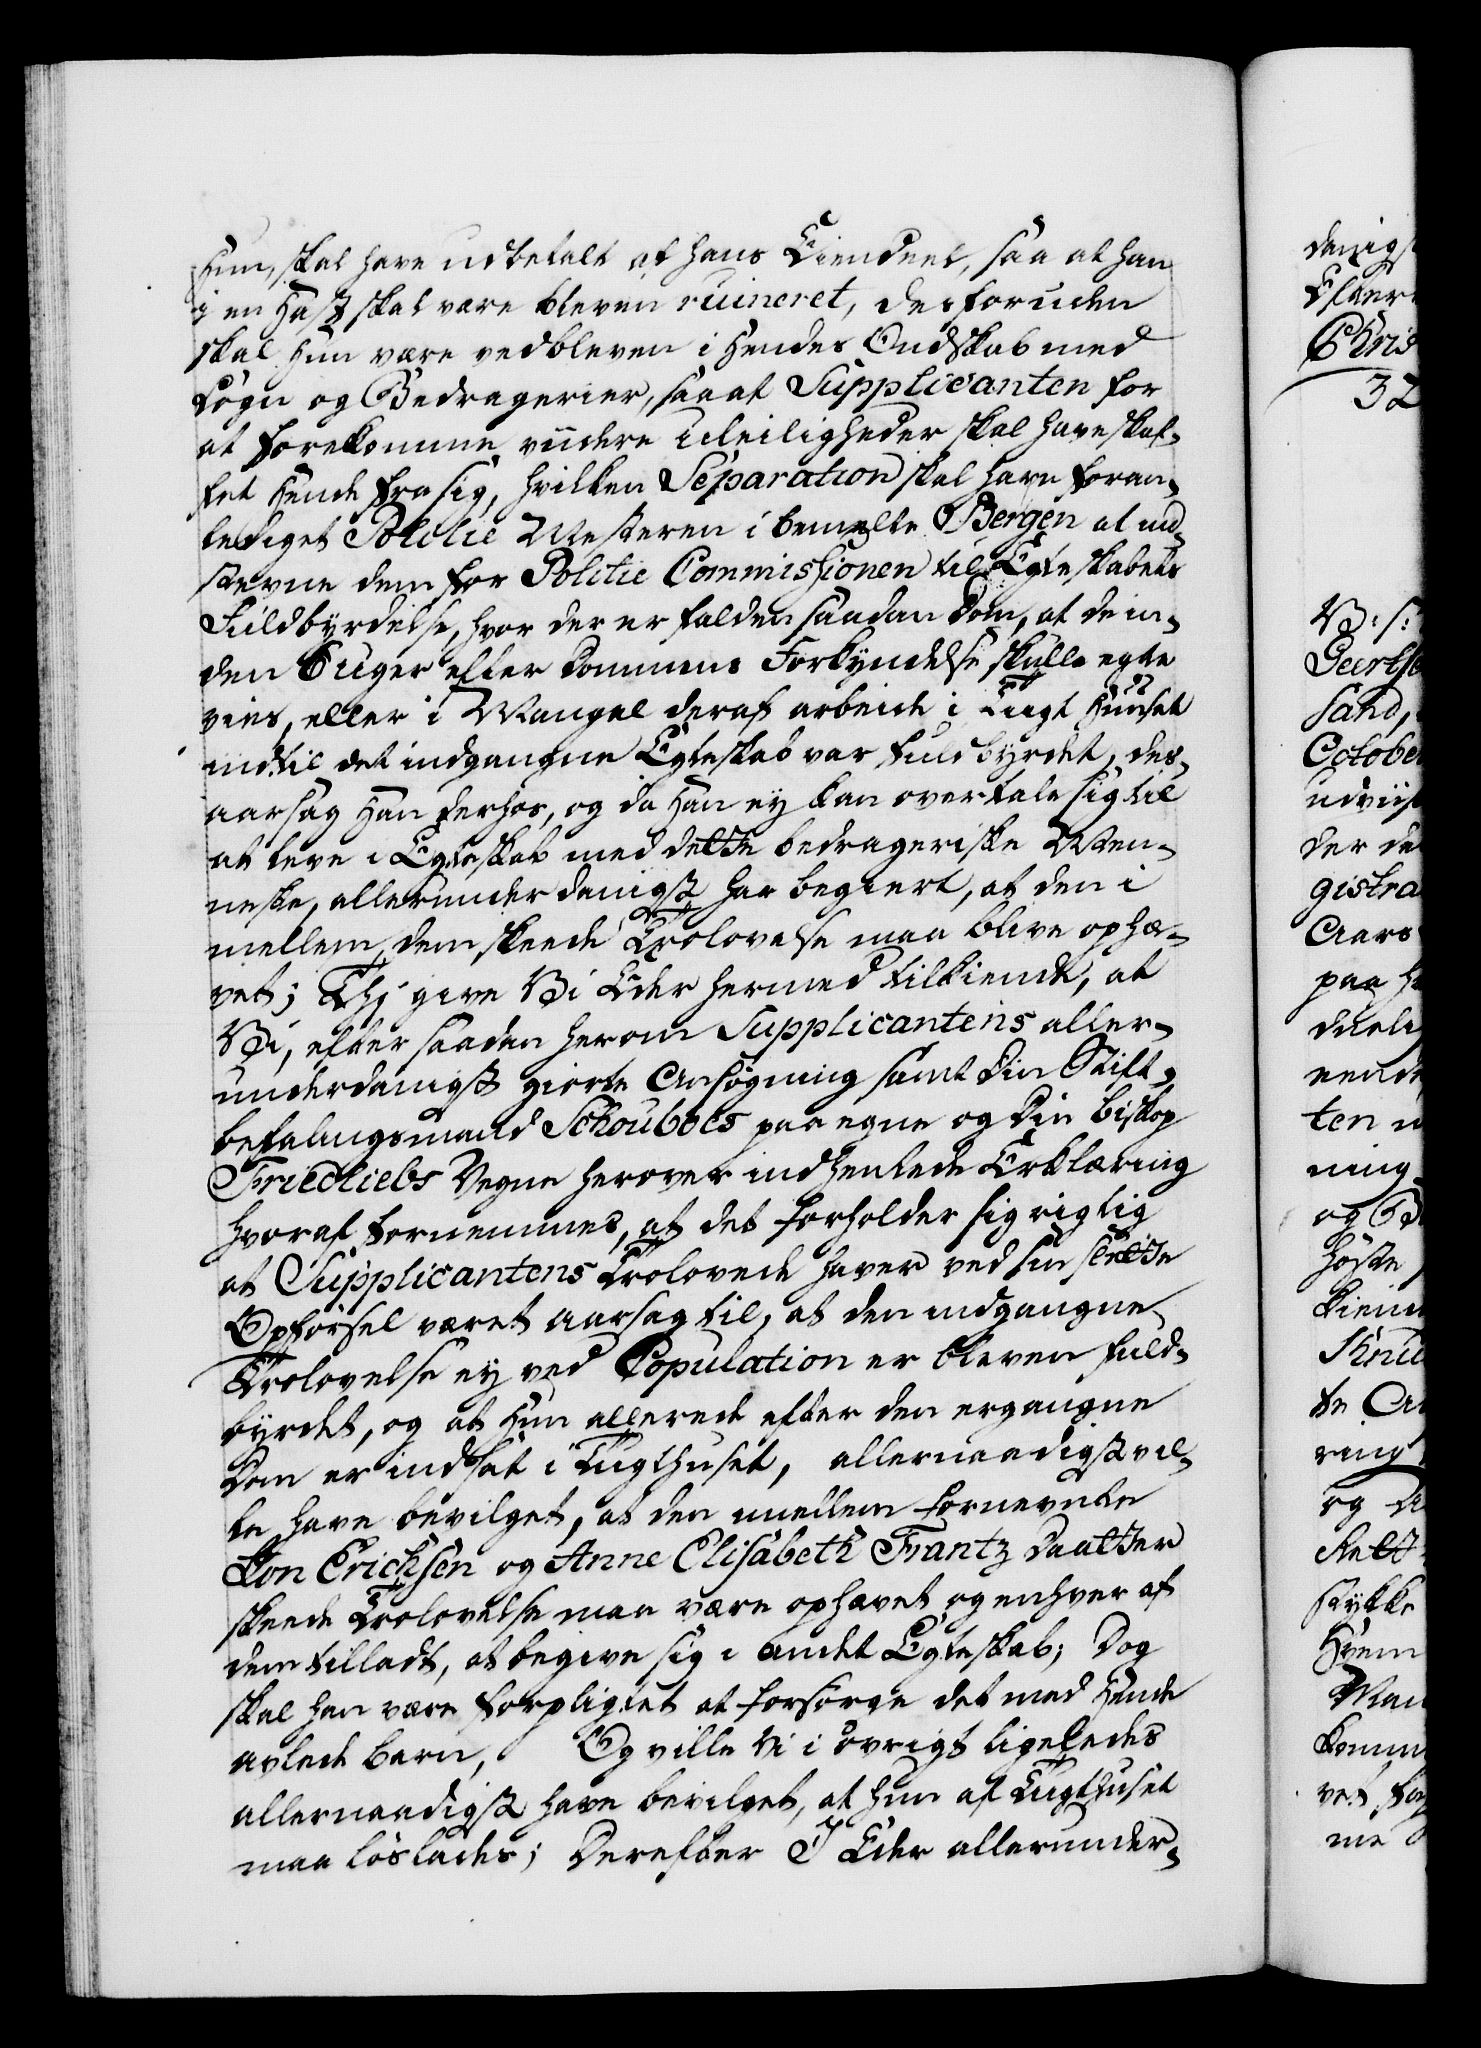 Hun, skal have udbetalt af hans Eiendeel, saa at han
i en Hast skal være bleven ruineret, desforuden
skal Hun være vedbleven i Hendes Ondskab med
Løgn og Bedragerier, saa at Supplicanten for
at forekomme viidere Uleiligheder skal have skaf¬
fet Hende fra sig, hvilken Separation skal have foran¬
lediget Politie Mesteren i bemelte Bergen at ind¬
stevne dem for Politie Commissionen til Egteskabets
Fuldbyrdelse, hvor der er falden saadan Dom, at de in¬
den 6 Uger efter Dommens Forkyndelse skulle egte
vies, eller i Mangel deraf arbeide i Tugt Huuset
indtil det indgangne Egteskab var fuldbyrdet, des¬
aarsag Han derhos, og da Han ey kan overtale sig til
at leve i Egteskab med dette bedrageriske Men¬
neske, allerunderdanigst har begiert, at den i
mellem dem skeede Trolovelse maa blive ophæ¬
vet; Thj give Vi Eder hermed tilkiende, at
Vi, efter saadan herom Supplicantens aller¬
underdanigst giorte Ansøgning samt Din Stift¬
befalingsmand Schouboes paa egne og Din Biskop
Friedliebs Vegne herover indhentede Erklæring
hvoraf fornemmes, at det forholder sig rigtig
at Supplicantens Trolovede haver ved sin slette
Opførsel været aarsag til, at den indgangne
Trolovelse ey ved Copulation er bleven fuld¬
byrdet, og at Hun allerede efter den ergangne
Dom er indsat i Tugthuset, allernaadigst vil¬
le have bevilget, at den imellem fornevnte
Lon Erichsen og Anne Elisabeth Frantz Daatter
skeede Trolovelse maa være ophævet og enhver af
dem tilladt, at begive sig i andet Egteskab; Dog
skal han være forpligtet at forsørge det med Hende
avlede Barn, Og ville Vi i øvrigt ligeledes
allernaadigst have bevilget, at hun af Tugthuset
maa løslades; Derefter I Eder allerunder¬
danigst
Efter
Chris
32
V: S:
Geertse
sand,
Octobe
udviis
der de
gistra
Aars
paa h
ten
ning
og B
høste
kien
Knu
te A
ring
og
Rett
stykke
Hvem
Man
komm
vet for
me